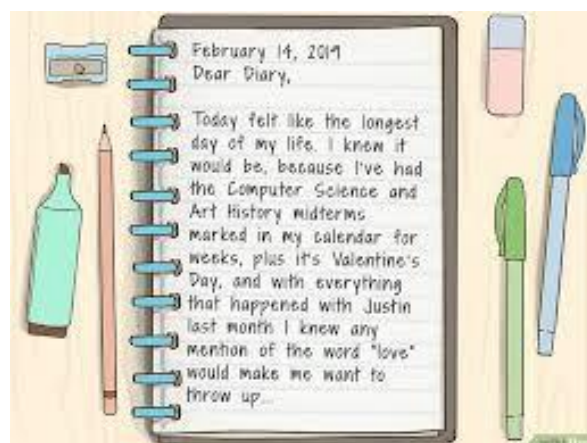 February 14, 2019
Dear Diary,
Today felt like the longest
day of my life. I knew it
would be, because I've had
the Computer Science and
Art History midterms
marked in my calendar for
weeks, plus it's Valentine's
Day, and with everything
that happened with Justin
last month I knew any
mention of the word "love"
would make me want to
throw up...